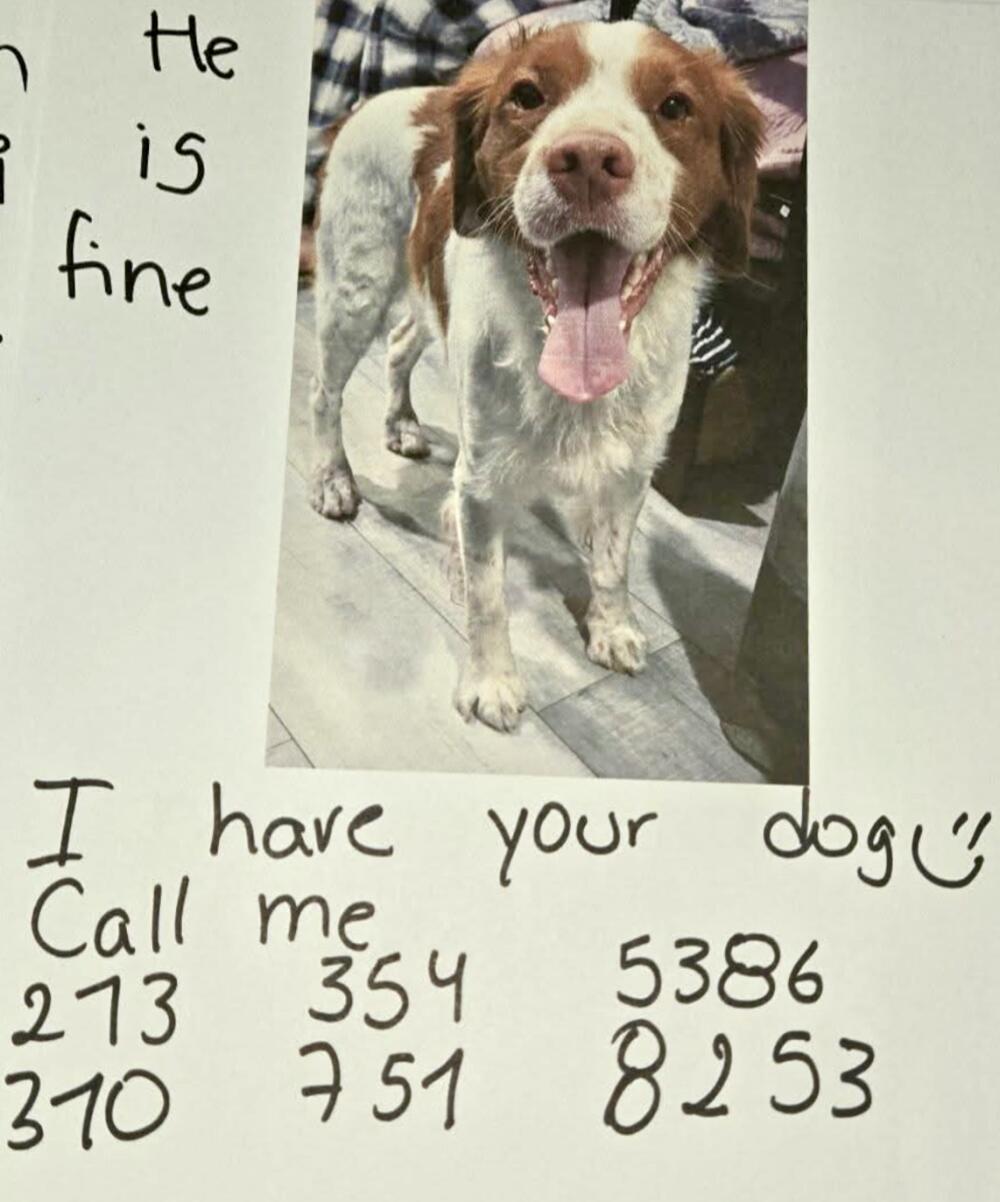 He
is
fine
I have your dog
Call me
213 354 5386
310 751 8253